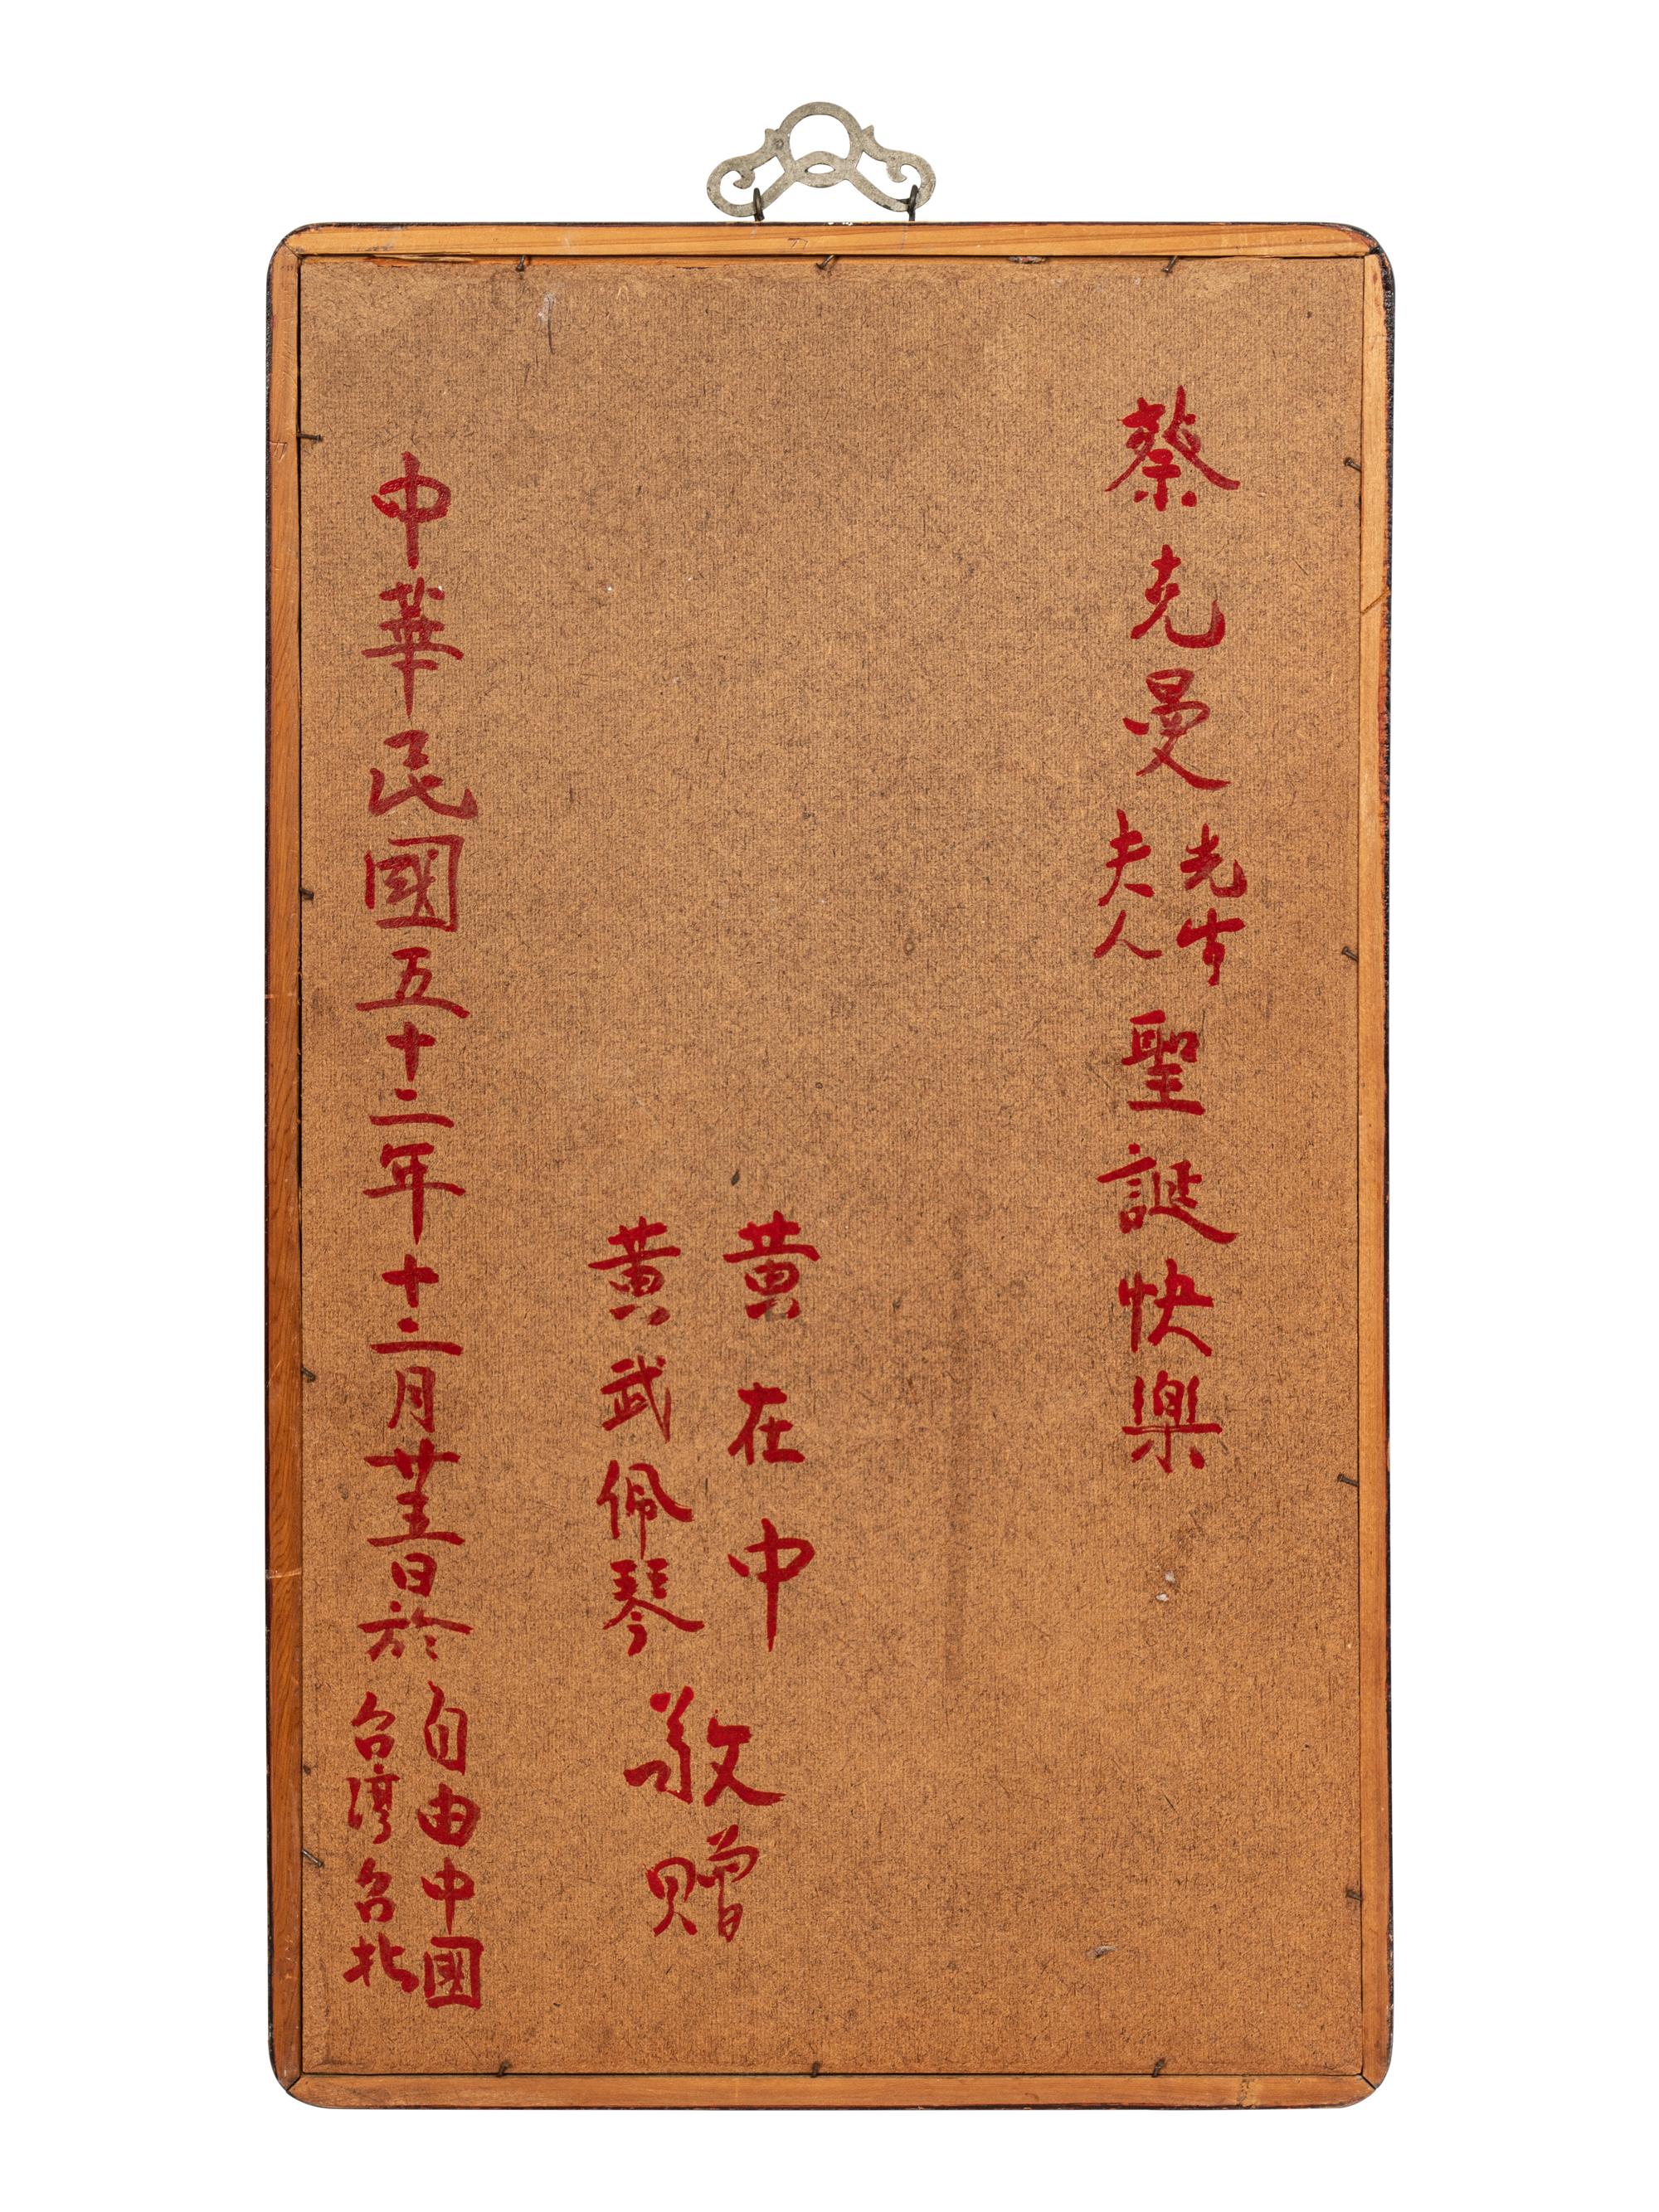 蔡克曼先生夫人聖誕快樂
黄在中
黄武佩琴
敬贈
中華民國五十二年十二月廿五日於
自由中國
台灣台北